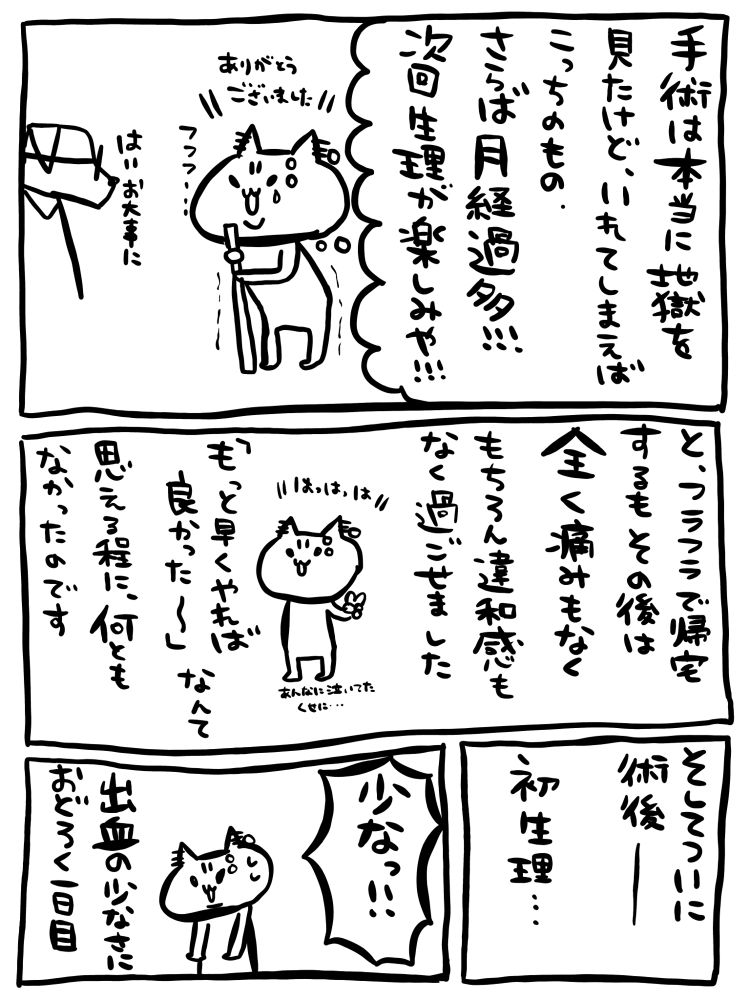 手術は本当に地獄を
見たけど、いれてしまえば
こっちのもの.
さらば月経過多!!!
次回生理が楽しみや!!!
ありがとう
ございました
フフフ…
はいお大事に
と、フラフラで帰宅
するもその後は
全く痛みもなく
もちろん違和感も
なく過ごせました
はっはっは
あんなに泣いてた
くせに…
「もっと早くやれば
良かった〜」なんて
思える程に、何とも
なかったのです
そしてついに
術後―
初生理…
少なっ!!
出血の少なさに
おどろく一日目